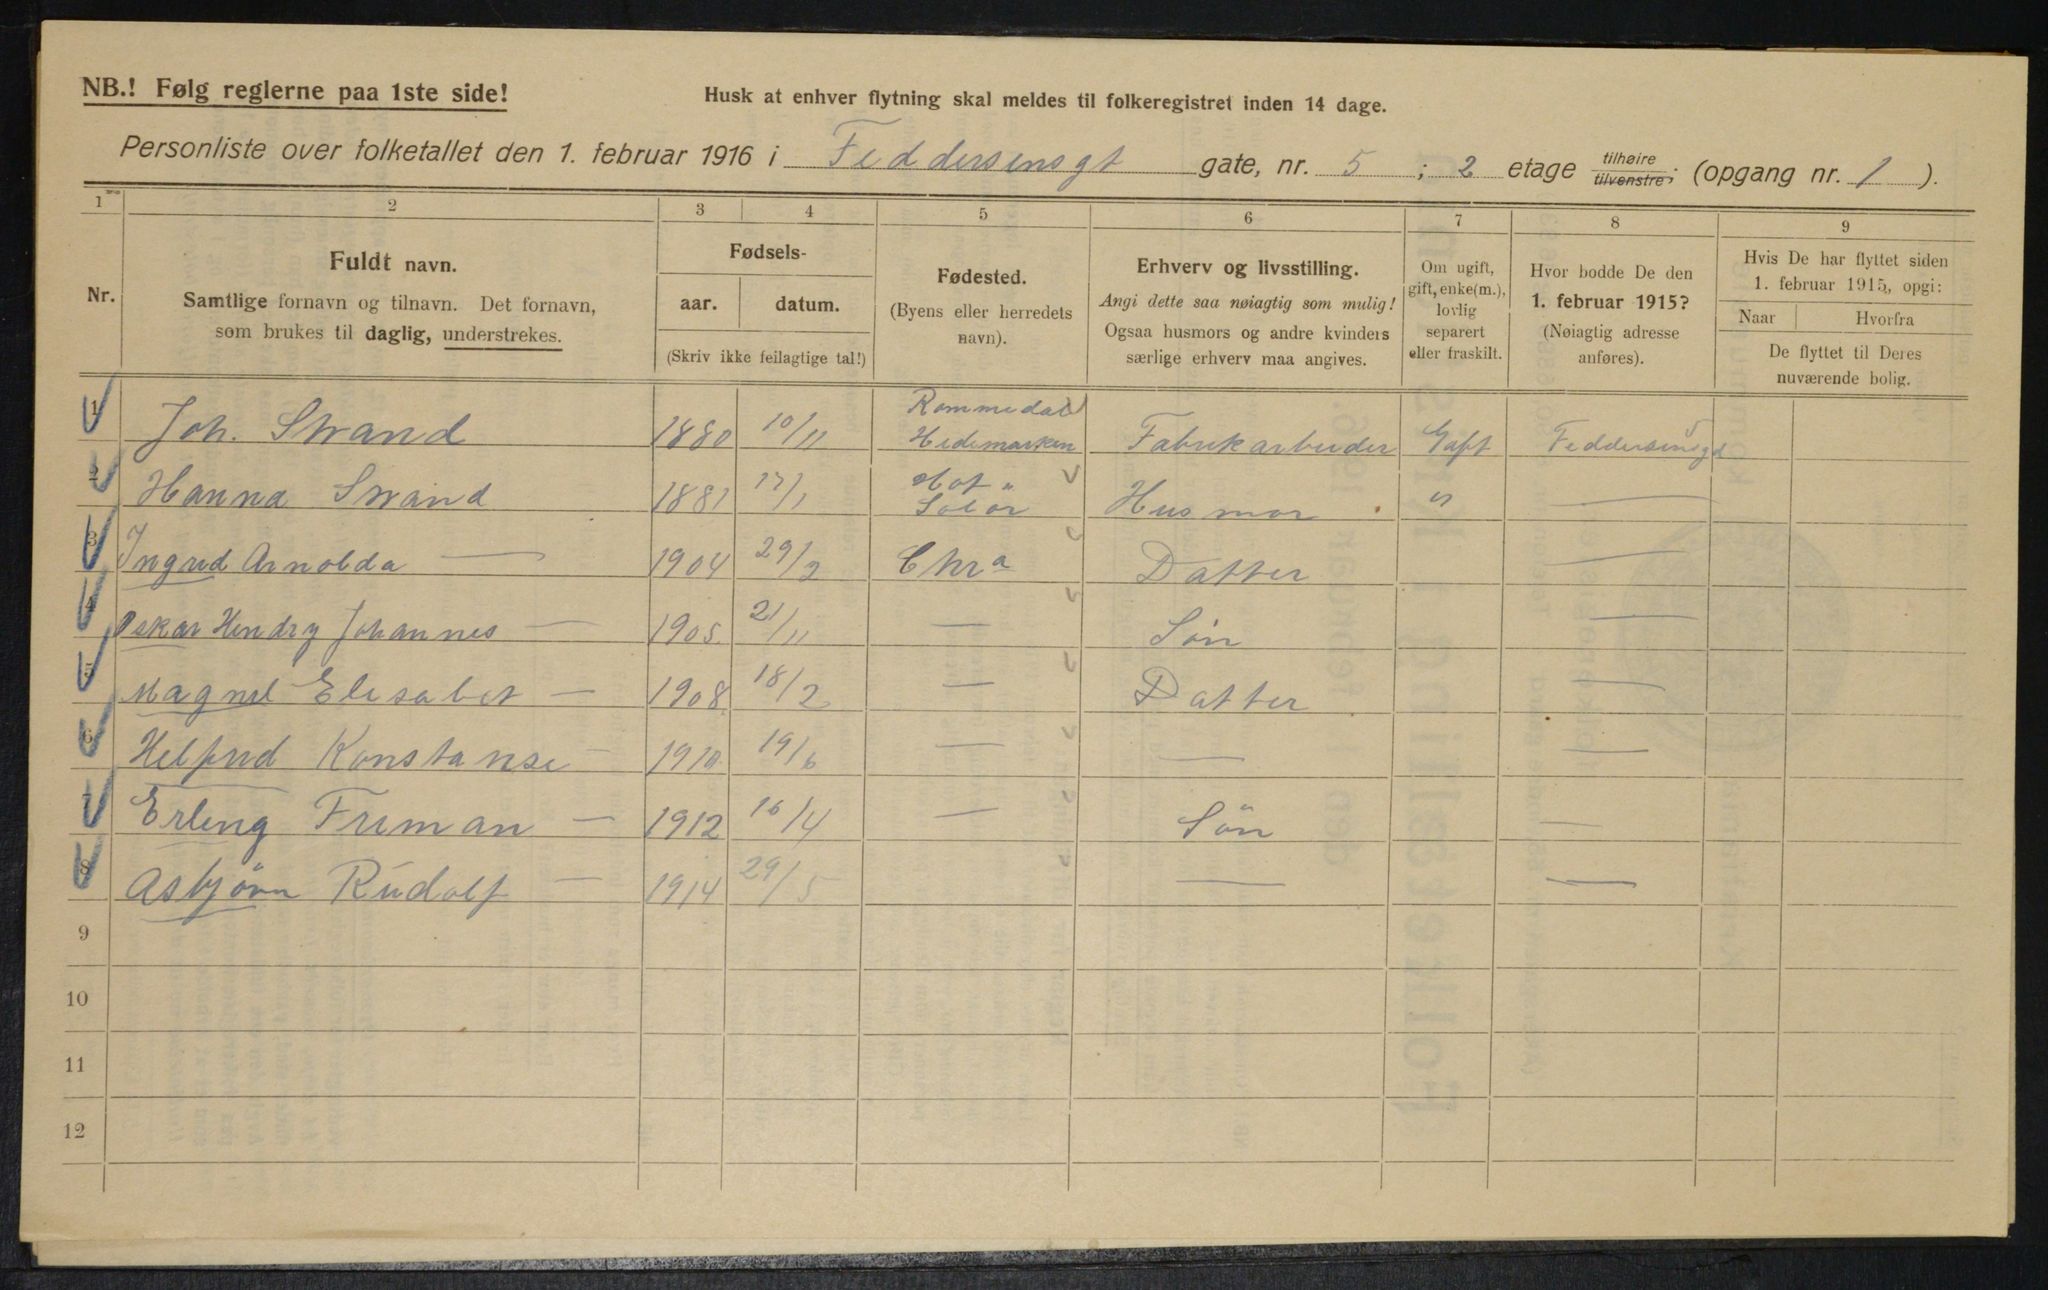 NB.! Følg reglerne paa 1ste side!
Husk at enhver flytning skal meldes til folkeregistret inden 14 dage.
Personliste over folketallet den 1. februar 1916 i Feddersensgt gate, nr. 5 ; 2 etage tilhøire tilvenstre; (opgang nr. 1 ).
1 2 3 4 5 6 7 8 9
Nr.
Fuldt navn.
Samtlige fornavn og tilnavn. Det fornavn,
som brukes til daglig, understrekes.
Fødsels-
aar. datum.
(Skriv ikke feilagtige tal!)
Fødested.
(Byens eller herredets
navn).
Erhverv og livsstilling.
Angi dette saa nøiagtig som mulig!
Ogsaa husmors og andre kvinders
særlige erhverv maa angives.
Om ugift,
gift, enke(m.),
lovlig
separert
eller fraskilt.
Hvor bodde De den
1. februar 1915?
(Nøiagtig adresse
anføres).
Hvis De har flyttet siden
1. februar 1915, opgi:
Naar Hvorfra
De flyttet til Deres
nuværende bolig.
1 Joh. Strand 1880 10/11 Rommedal Hedemarken Fabrikarbeider Gift Feddersensgd 5
2 Hanna Strand 1881 17/1 Hof " Solør Husmor " —
3 Ingrid Arnolda — 1904 29/2 Chra Datter —
4 Oskar Hendry Johannes — 1905 21/11 — Søn —
5 Magnel Elisabet — 1908 18/2 — Datter —
6 Helfrid Konstanse — 1910 19/6 — — —
7 Erling Friman — 1912 16/4 — Søn —
8 Asbjörn Rudolf — 1914 29/5 — —
9
10
11
12